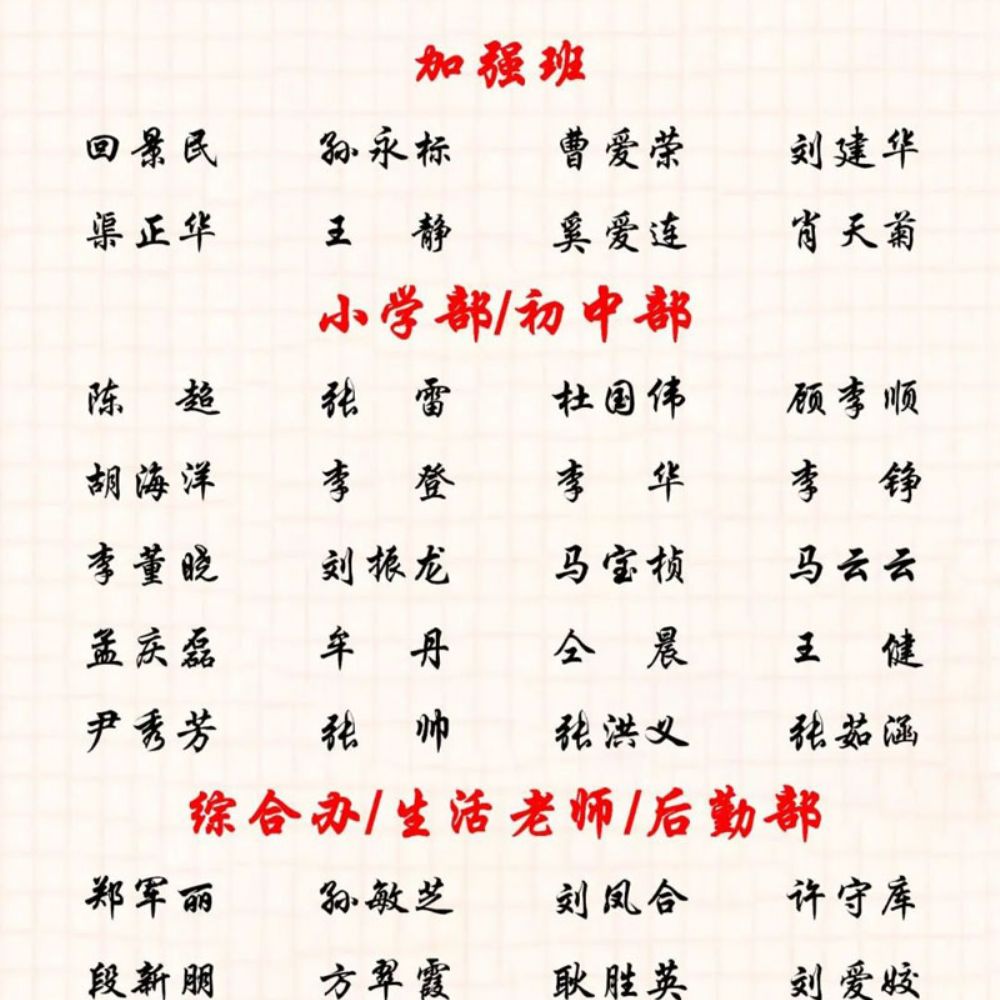 加强班
回景民 孙永标 曹爱荣 刘建华
渠正华 王静 奚爱连 肖天菊
小学部/初中部
陈超 张雷 杜国伟 顾李顺
胡海洋 李登 李华 李铮
李董晓 刘振龙 马宝桢 马云云
孟庆磊 牟丹 仝晨 王健
尹秀芳 张帅 张洪义 张茹涵
综合办/生活老师/后勤部
郑军丽 孙敏芝 刘凤合 许守库
段新朋 方翠霞 耿胜英 刘爱姣